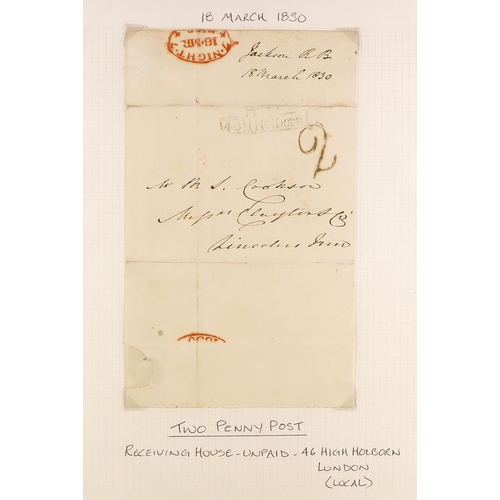 18 MARCH 1830
NIGHT. 7
18. MR
Jackson R B
18 March 1830
2
Mr M S. Cookson
Messrs Clayton & Co
Lincolns Inn
1830
TWO PENNY POST
RECEIVING HOUSE - UNPAID - 46 HIGH HOLBORN
LONDON
(LOCAL)